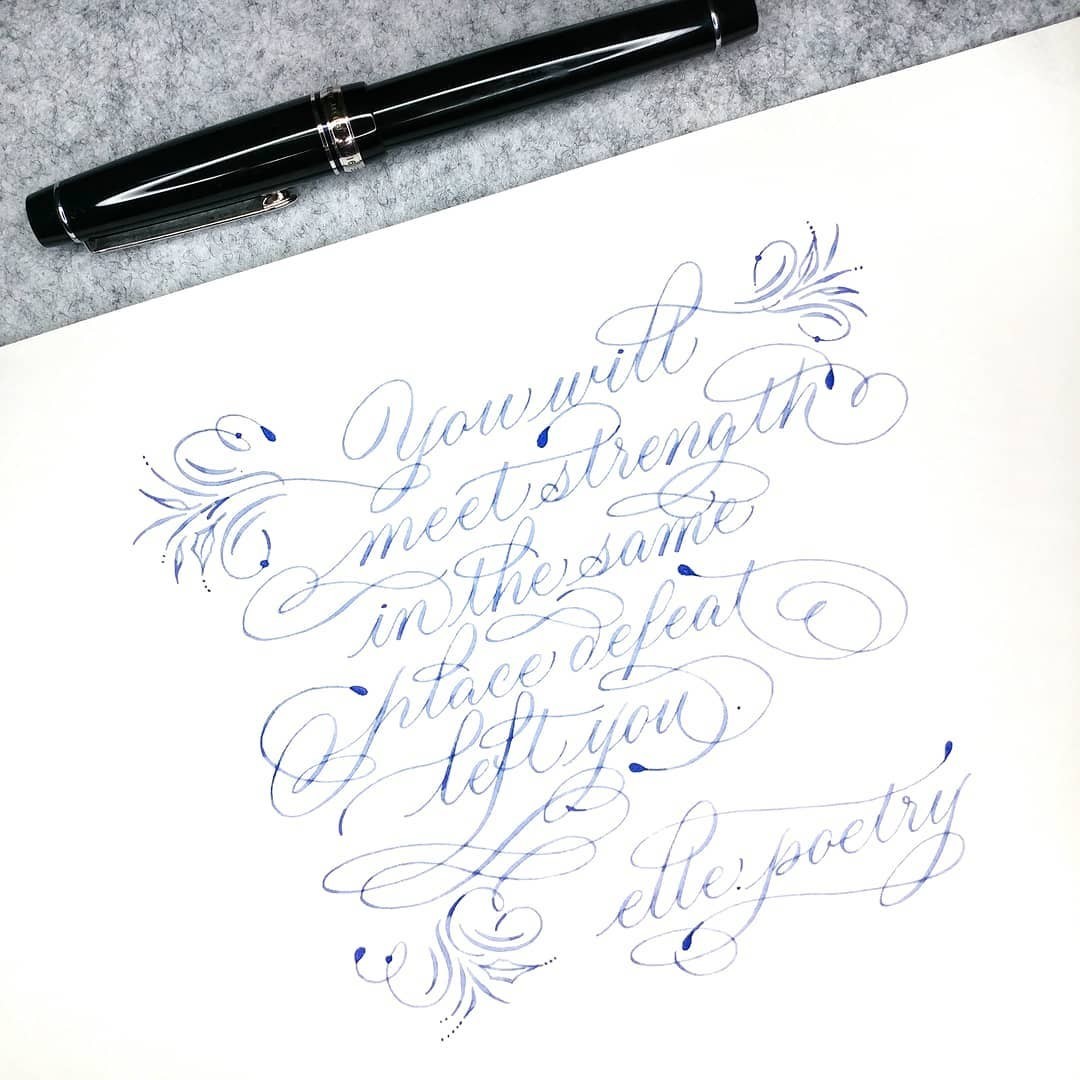 You will
meet strength
in the same
place defeat
left you.
elle.poetry